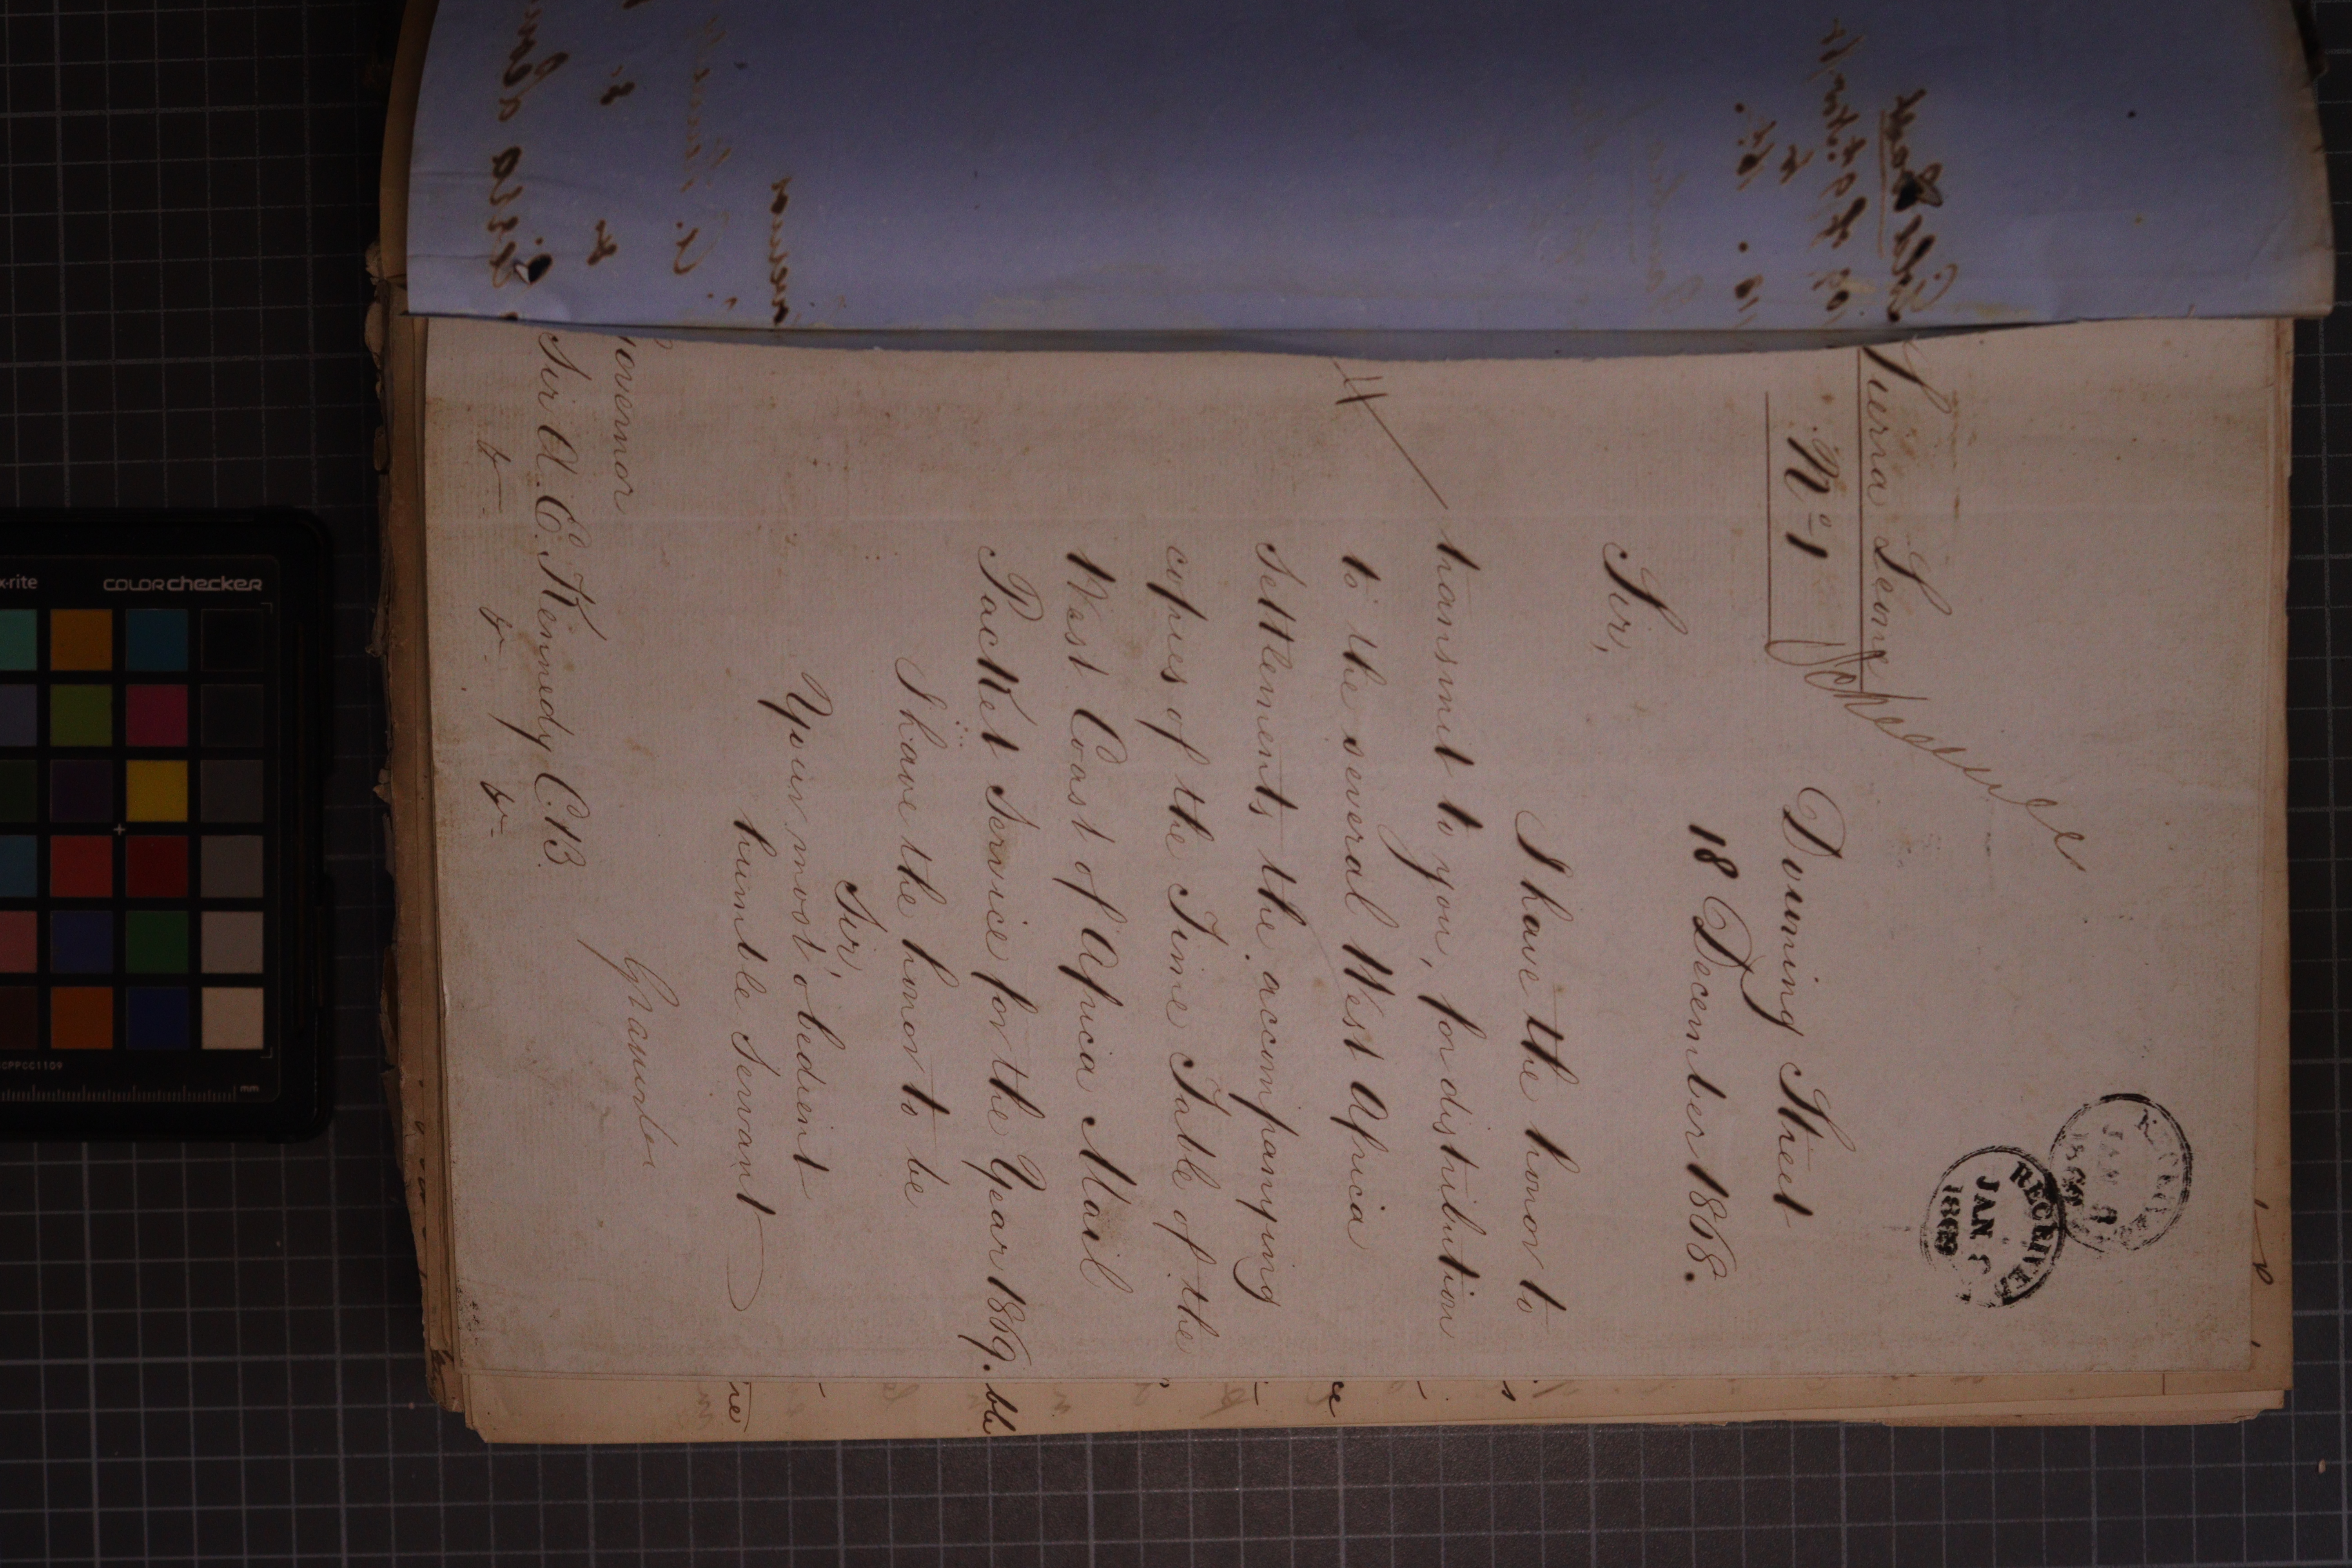 Sierra Leone
No 1
RECEIVED
JAN
1869
Downing Street
18 December 1868.
Sir,
I have the honor to
transmit to you, for distribution
to the several West Africa
Settlements, the accompanying
copies of the Time Table of the
West Coast of Africa Mail
Packet Service for the Year 1869.
I have the honor to be
Sir,
Your most obedient
humble Servant
Granville
Governor
Sir A. E. Kennedy C.B.
&c. &c. &c.
x-rite
COLORchecker
mm